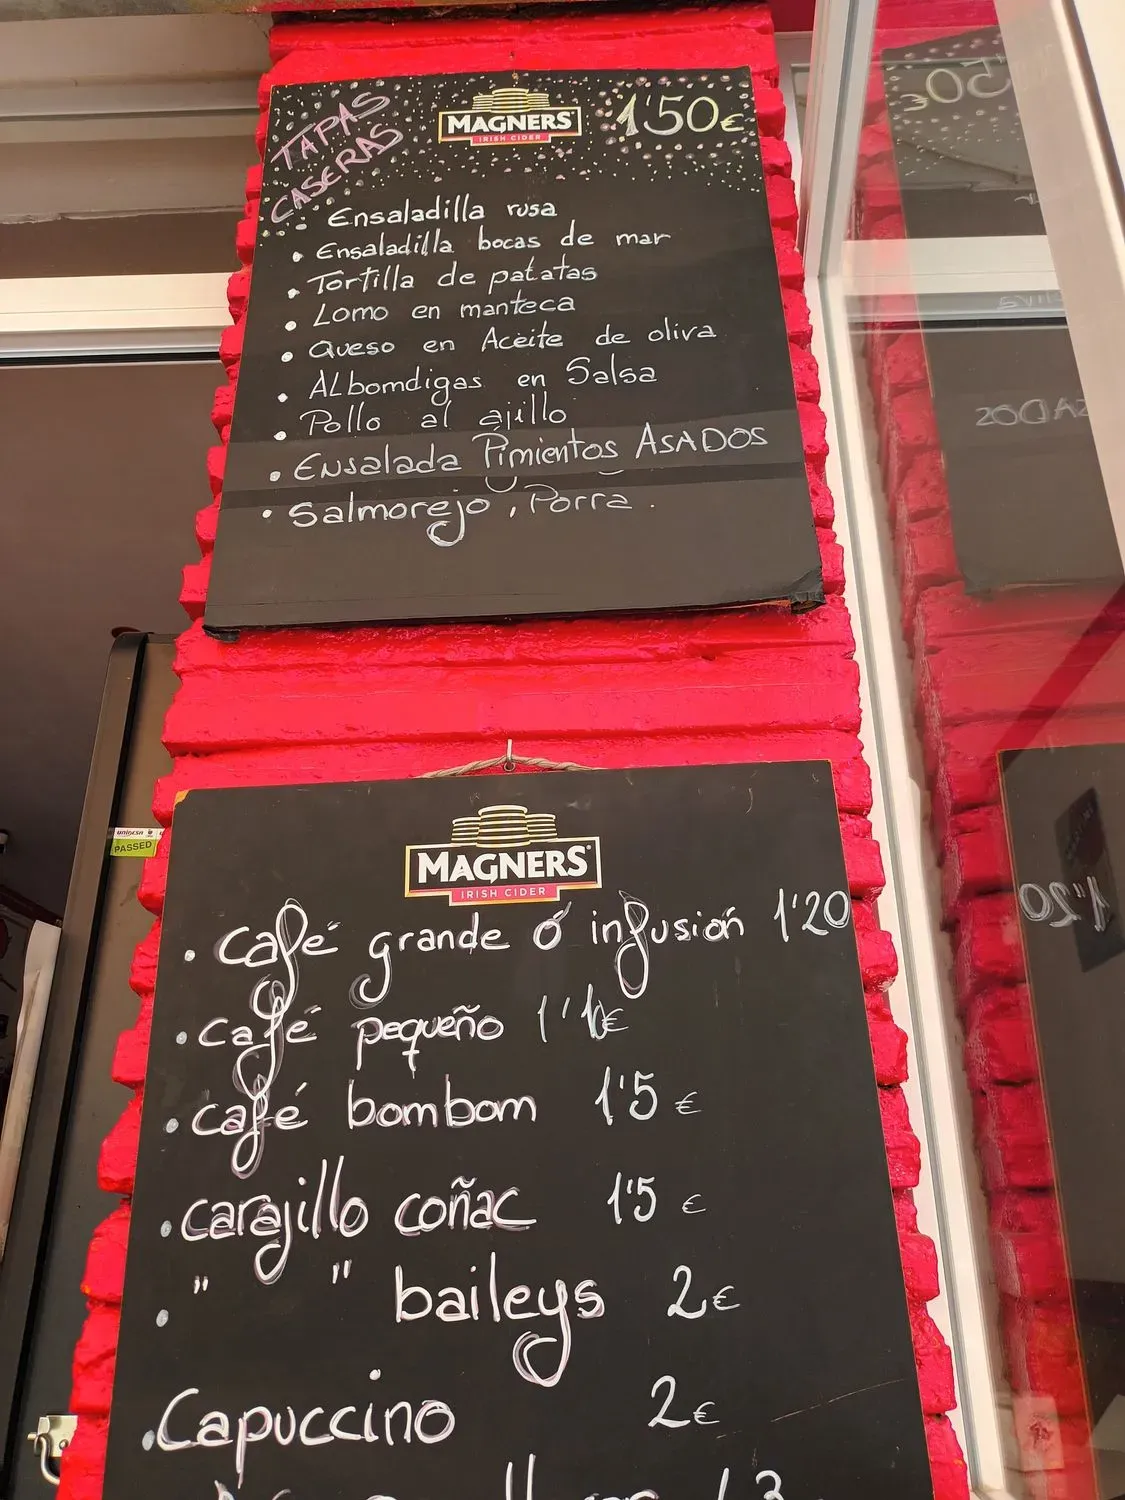 TAPAS
CASERAS
MAGNERS
IRISH CIDER
1'50€
Ensaladilla rusa
• Ensaladilla bocas de mar
• Tortilla de patatas
• Lomo en manteca
• Queso en Aceite de oliva
• ALbomdigas en Salsa
• Pollo al ajillo
• Ensalada Pimientos ASADOS
• Salmorejo, Porra.
MAGNERS
IRISH CIDER
• café grande ó infusión 1'20
• café pequeño 1'10€
• café bombom 1'5 €
• carajillo coñac 1'5 €
• " " baileys 2€
• Capuccino 2€
PASSED